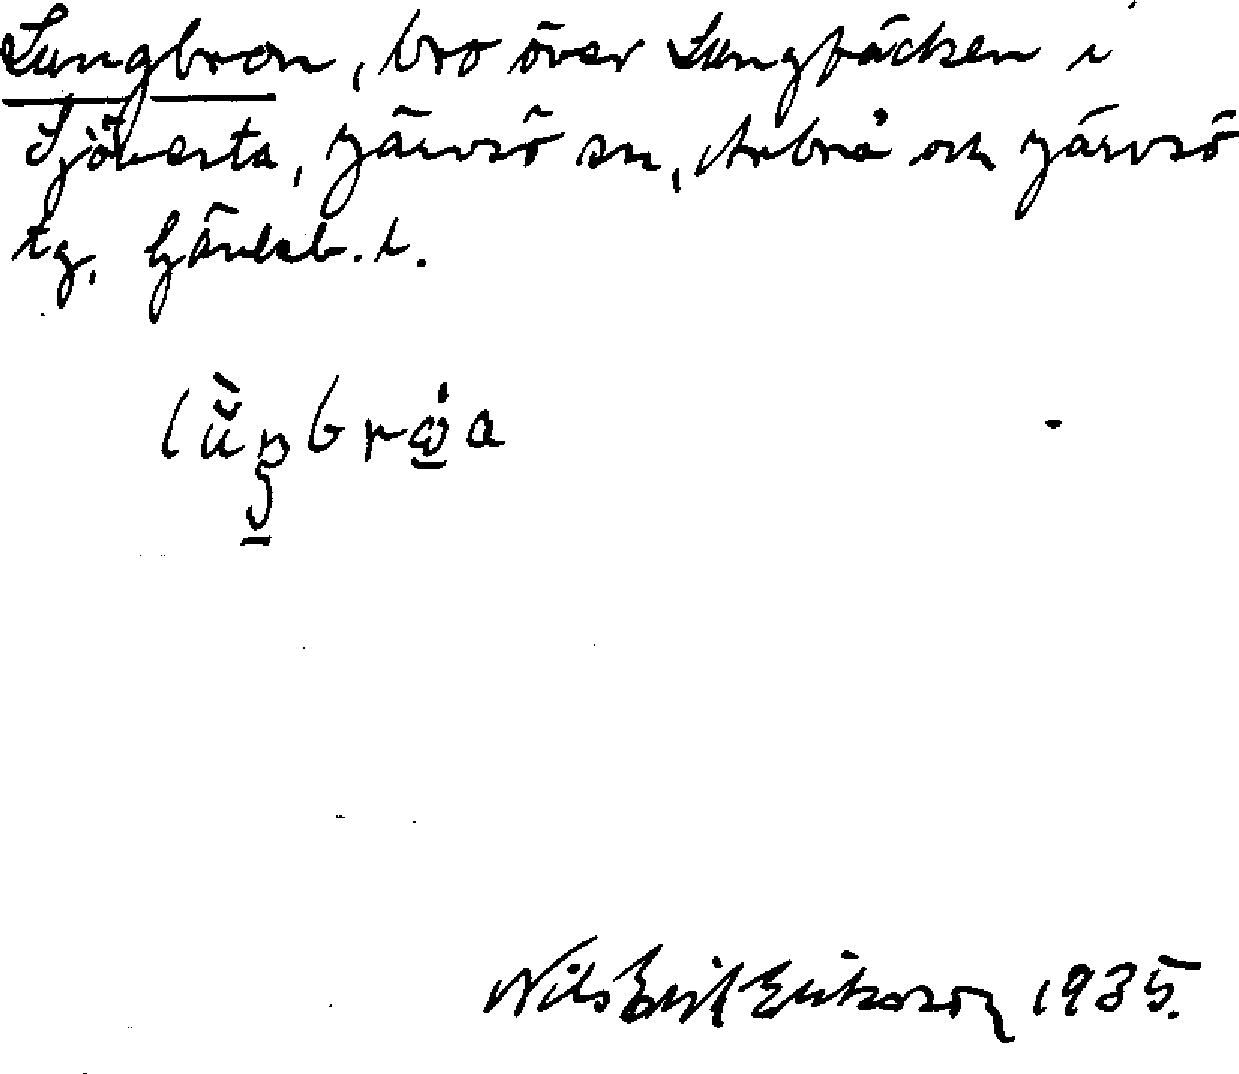 Lungbron, bro över Lungbäcken i
Tjövesta, Järvsö sn, Arbrå och Järvsö
tg, Gävleb. l.
Nils Erik Eriksson 1935.